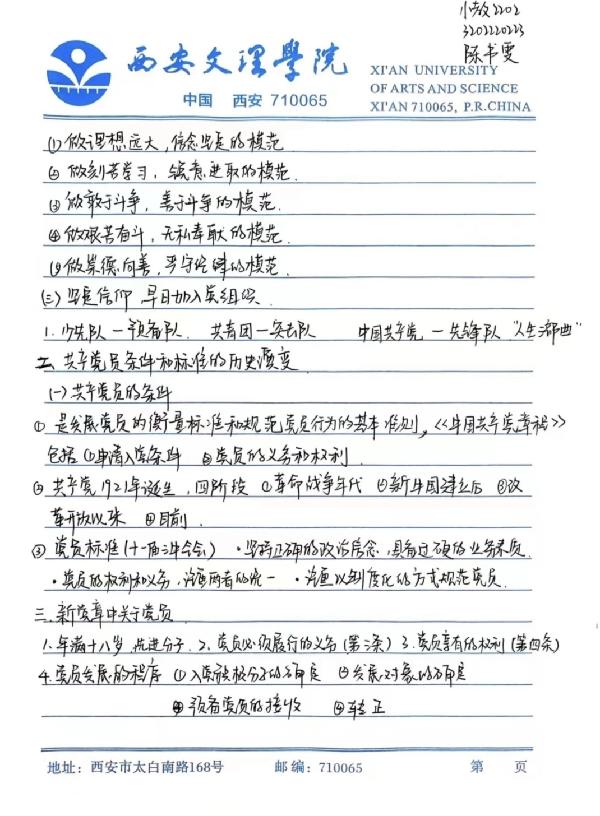 小教2202
3202220223
陈书雯
西安文理學院
中国 西安 710065
XI'AN UNIVERSITY
OF ARTS AND SCIENCE
XI'AN 710065, P.R.CHINA
(1) 做理想远大，信念坚定的模范
② 做刻苦学习，锐意进取的模范.
③ 做敢于斗争，善于斗争的模范.
④ 做艰苦奋斗，无私奉献的模范.
(5) 做崇德向善，严守纪律的模范.
(三) 坚定信仰 早日加入党组织
1. 少先队 — 预备队 共青团 — 突击队 中国共产党 — 先锋队 "人生三部曲"
二、共产党员条件和标准的历史演变
(一) 共产党员的条件
① 是发展党员的衡量标准和规范党员行为的基本准则，《中国共产党章程》
包括 ① 申请入党条件 ② 党员的义务和权利
② 共产党1921年诞生，四阶段 ① 革命战争年代 ② 新中国建立后 ③ 改
革开放以来 ④ 目前.
③ 党员标准(十一届三中全会) · 坚持正确的政治信念，具有过硬的业务素质
· 党员的权利和义务，注重两者的统一 · 注重以制度化的方式规范党员.
三、新党章中关于党员
1. 年满十八岁，先进分子. 2. 党员必须履行的义务(第三条) 3. 党员享有的权利(第四条)
4. 党员发展的程序 ① 入党积极分子的确定 ② 发展对象的确定
③ 预备党员的接收 ④ 转正
地址：西安市太白南路168号 邮编：710065 第 页